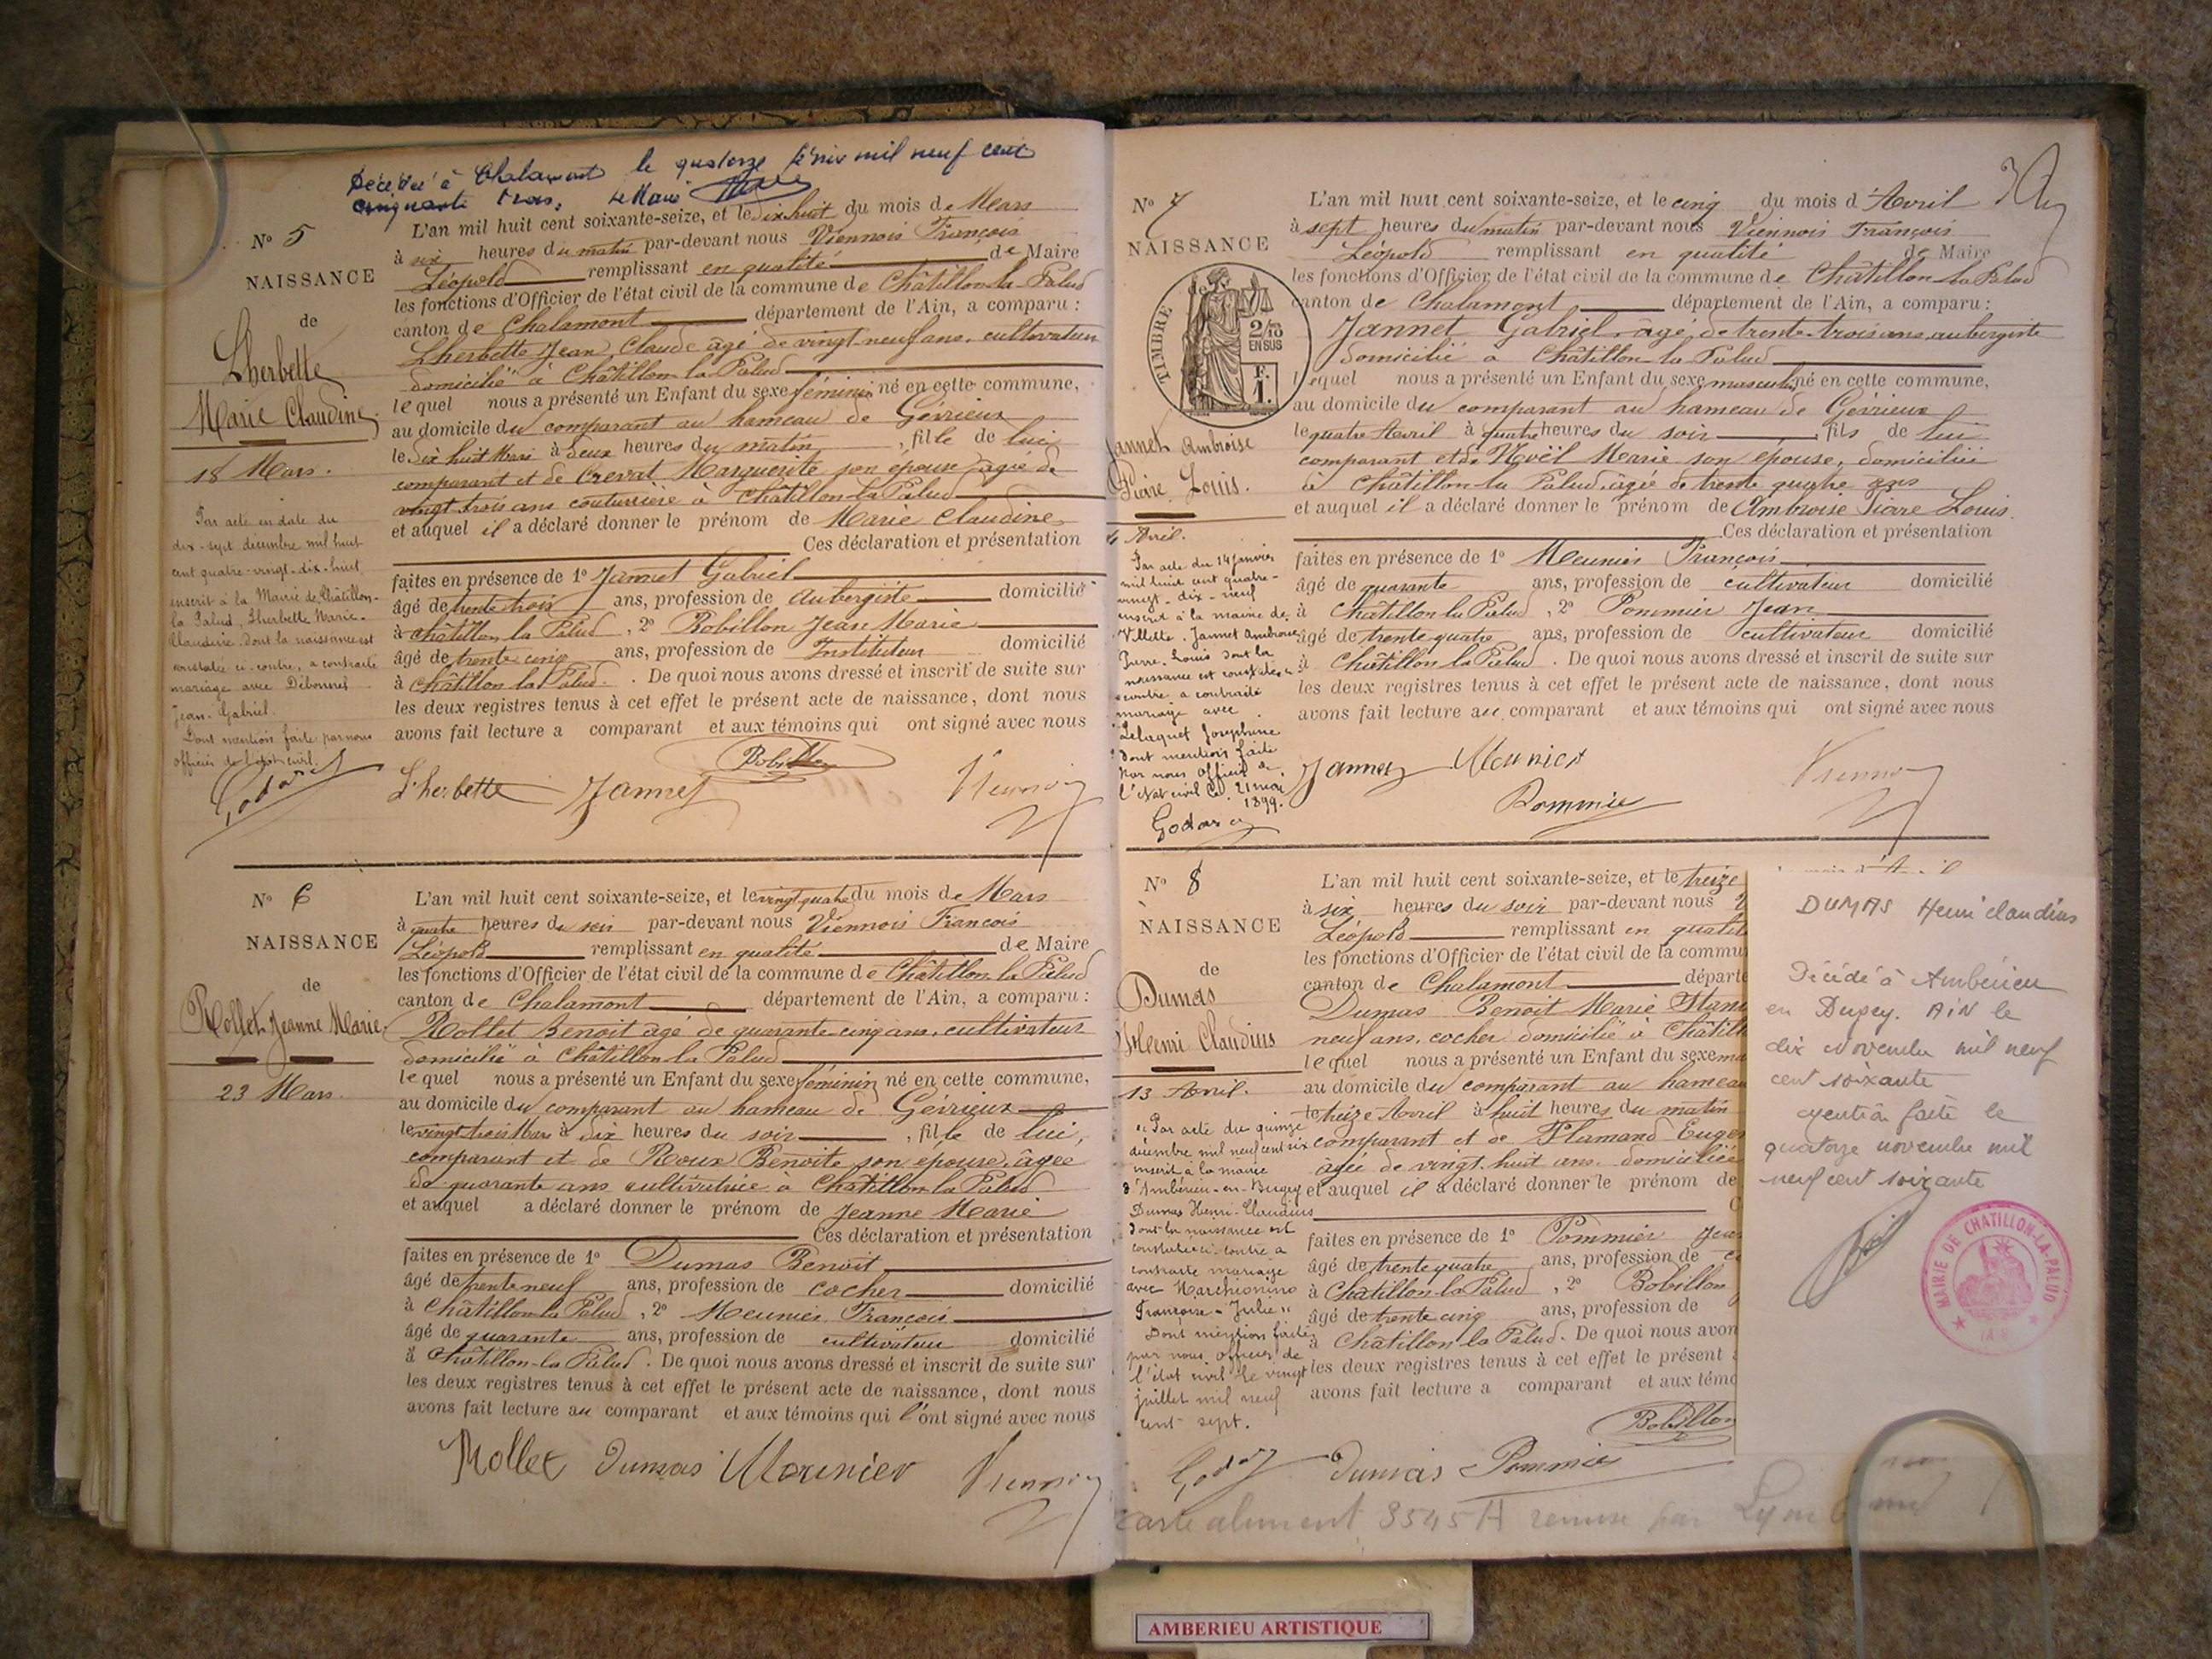 Décédée à Chalamont le quatorze février mil neuf cent
cinquante trois. Le Maire
N° 5
NAISSANCE
de
Lherbette
Marie Claudine
18 Mars.
Par acte en date du
dix-sept décembre mil huit
cent quatre-vingt-dix-huit
inscrit à la Mairie de Châtillon-
la Palud, Lherbette Marie-
Claudine dont la naissance est
constatée ci-contre, a contracté
mariage avec Débonnel
Jean-Gabriel.
Dont mention faite par nous
officier de l'état civil.
Godard
L'an mil huit cent soixante-seize, et le dix huit du mois de Mars
à six heures du matin par-devant nous Viennois François
Léopold remplissant en qualité de Maire
les fonctions d'Officier de l'état civil de la commune de Châtillon-la-Palud
canton de Chalamont département de l'Ain, a comparu :
Lherbette Jean, Claude âgé de vingt-neuf ans, cultivateur
domicilié à Châtillon la Palud
lequel nous a présenté un Enfant du sexe féminin né en cette commune,
au domicile du comparant au hameau de Gévrieux
le dix huit Mars à deux heures du matin , fille de lui
comparant et de Crevat Marguerite son épouse âgée de
vingt trois ans couturière à Châtillon-la Palud
et auquel il a déclaré donner le prénom de Marie Claudine
Ces déclaration et présentation
faites en présence de 1° Jannet Gabriel
âgé de trente trois ans, profession de Aubergiste domicilié
à Châtillon la Palud , 2° Bobillon Jean Marie
âgé de trente cinq ans, profession de Instituteur domicilié
à Châtillon la Palud . De quoi nous avons dressé et inscrit de suite sur
les deux registres tenus à cet effet le présent acte de naissance, dont nous
avons fait lecture a comparant et aux témoins qui ont signé avec nous
Bobillon
Lherbette Jannet Viennois
N° 6
NAISSANCE
de
Rollet Jeanne Marie
23 Mars.
L'an mil huit cent soixante-seize, et le vingt quatre du mois de Mars
à quatre heures du soir par-devant nous Viennois François
Léopold remplissant en qualité de Maire
les fonctions d'Officier de l'état civil de la commune de Châtillon la Palud
canton de Chalamont département de l'Ain, a comparu :
Rollet Benoit âgé de quarante-cinq ans, cultivateur
domicilié à Châtillon la Palud
lequel nous a présenté un Enfant du sexe féminin né en cette commune,
au domicile du comparant au hameau de Gévrieux
le vingt trois Mars à dix heures du soir , fille de lui,
comparant et de Roux Benoite son épouse, âgée
de quarante ans cultivatrice à Châtillon la Palud
et auquel a déclaré donner le prénom de Jeanne Marie
Ces déclaration et présentation
faites en présence de 1° Dumas Benoit
âgé de trente neuf ans, profession de cocher domicilié
à Châtillon la Palud , 2° Meunier François
âgé de quarante ans, profession de cultivateur domicilié
à Châtillon-la Palud . De quoi nous avons dressé et inscrit de suite sur
les deux registres tenus à cet effet le présent acte de naissance, dont nous
avons fait lecture au comparant et aux témoins qui l'ont signé avec nous
Rollet Dumas Meunier Viennois
N° 7
NAISSANCE
TIMBRE
2/10
EN SUS
F.
1.
Jannet Ambroise
Pierre Louis.
4 Avril.
Par acte du 14 janvier
mil huit cent quatre-
vingt-dix-neuf
inscrit à la mairie de
Villette, Jannet Ambroise
Pierre-Louis dont la
naissance est constatée
ci-contre a contracté
mariage avec
Lelaquet Joséphine
dont mention faite
par nous Officier de
l'état civil le 21 mai
1899.
Godard
L'an mil huit cent soixante-seize, et le cinq du mois d'Avril
à sept heures du matin par-devant nous Viennois François
Léopold remplissant en qualité de Maire
les fonctions d'Officier de l'état civil de la commune de Châtillon-la Palud
canton de Chalamont département de l'Ain, a comparu :
Jannet Gabriel, âgé de trente-trois ans, aubergiste
domicilié à Châtillon la Palud
lequel nous a présenté un Enfant du sexe masculin né en cette commune,
au domicile du comparant au hameau de Gévrieux
le quatre Avril à quatre heures du soir , fils de lui
comparant et de Noël Marie son épouse, domiciliée
à Châtillon-la Palud, âgée de trente quatre ans
et auquel il a déclaré donner le prénom de Ambroise Pierre Louis.
Ces déclaration et présentation
faites en présence de 1° Meunier François
âgé de quarante ans, profession de cultivateur domicilié
à Châtillon la Palud , 2° Pommier Jean
âgé de trente quatre ans, profession de cultivateur domicilié
à Châtillon la Palud . De quoi nous avons dressé et inscrit de suite sur
les deux registres tenus à cet effet le présent acte de naissance, dont nous
avons fait lecture au comparant et aux témoins qui ont signé avec nous
Jannet Meunier Viennois
Pommier
N° 8
NAISSANCE
de
Dumas
Henri Claudius
13 Avril.
"Par acte du quinze
décembre mil neuf cent six
inscrit à la mairie
d'Ambérieu-en-Bugey
Dumas Henri-Claudius
dont la naissance est
constatée ci-contre a
contracté mariage
avec Marchionino
Françoise-Julie"
Dont mention faite
par nous Officier de
l'état civil le vingt
juillet mil neuf
cent sept.
Godard
L'an mil huit cent soixante-seize, et le treize
à six heures du soir par-devant nous
Léopold remplissant en qualit
les fonctions d'Officier de l'état civil de la commu
canton de Chalamont départe
Dumas Benoit Marie
neuf ans, cocher domicilié à Châtill
lequel nous a présenté un Enfant du sexe ma
au domicile du comparant au hameau
le treize Avril à huit heures du matin
comparant et de Flamand Eugé
âgée de vingt-huit ans domiciliée
et auquel il a déclaré donner le prénom de
faites en présence de 1° Pommier Jean
âgé de trente quatre ans, profession de
à Châtillon-la Palud , 2° Bobillon
âgé de trente cinq ans, profession de
à Châtillon la Palud . De quoi nous avon
les deux registres tenus à cet effet le présent
avons fait lecture a comparant et aux témo
Bobillon
Dumas Pommier
DUMAS Henri Claudius
Décédé à Ambérieu
en Bugey. AIN le
dix Novembre mil neuf
cent soixante
mention faite le
quatorze novembre mil
neuf cent soixante
MAIRIE DE CHATILLON-LA-PALUD
carte aliment 3545 A remise par Lyon
AMBERIEU ARTISTIQUE